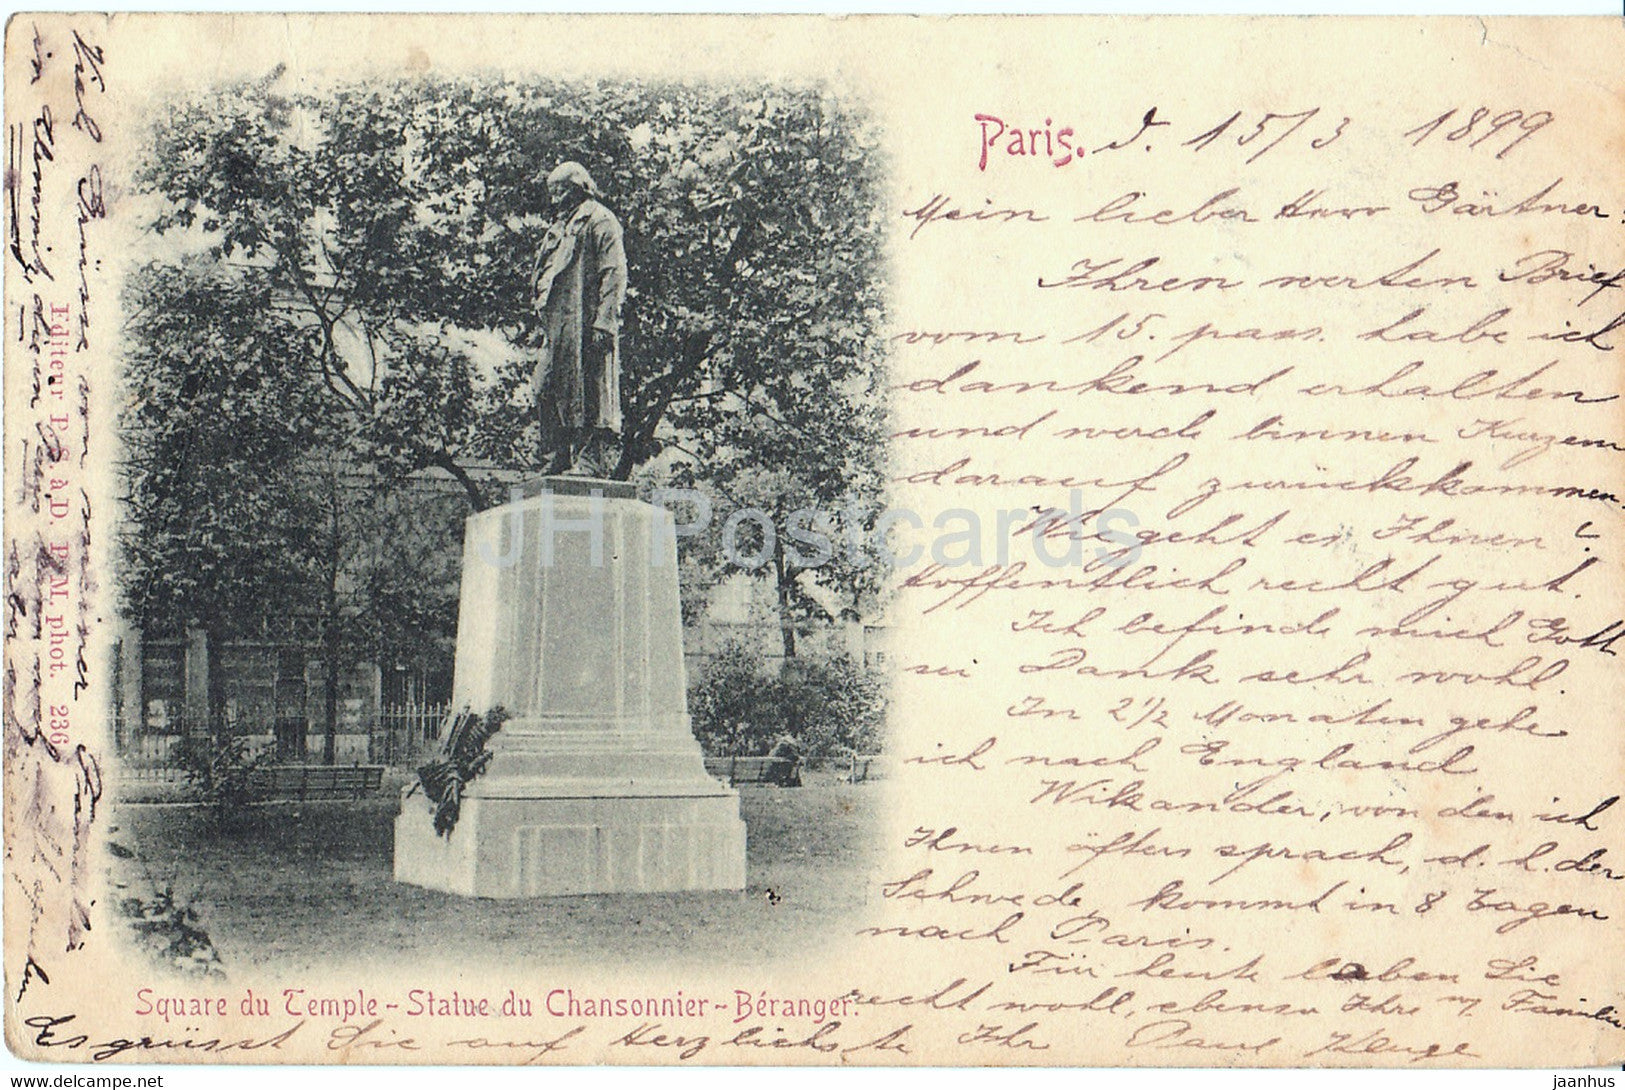 Paris. d. 15/3 1899
Mein lieber Herr Gärtner!
Ihren werten Brief
vom 15. pass. habe ich
dankend erhalten
und werde binnen Kurzem
darauf zurückkommen.
Wie geht es Ihnen?
Hoffentlich recht gut.
Ich befinde mich Gott
sei Dank sehr wohl.
In 2 1/2 Monaten gehe
ich nach England
Wikander, von den ich
Ihnen öfters sprach, d. h. der
Schwede, kommt in 8 Tagen
nach Paris.
Für heute leben Sie
recht wohl, ebenso Ihre w. Familie
Es grüsst Sie auf Herzlichste Ihr Paul Kluge
Viel Grüsse von meiner Familie
in
Square du Temple - Statue du Chansonnier - Béranger.
Editeur P. S. à D. P. M. phot. 236
JH Postcards
jhpostcards.com
jaanhus